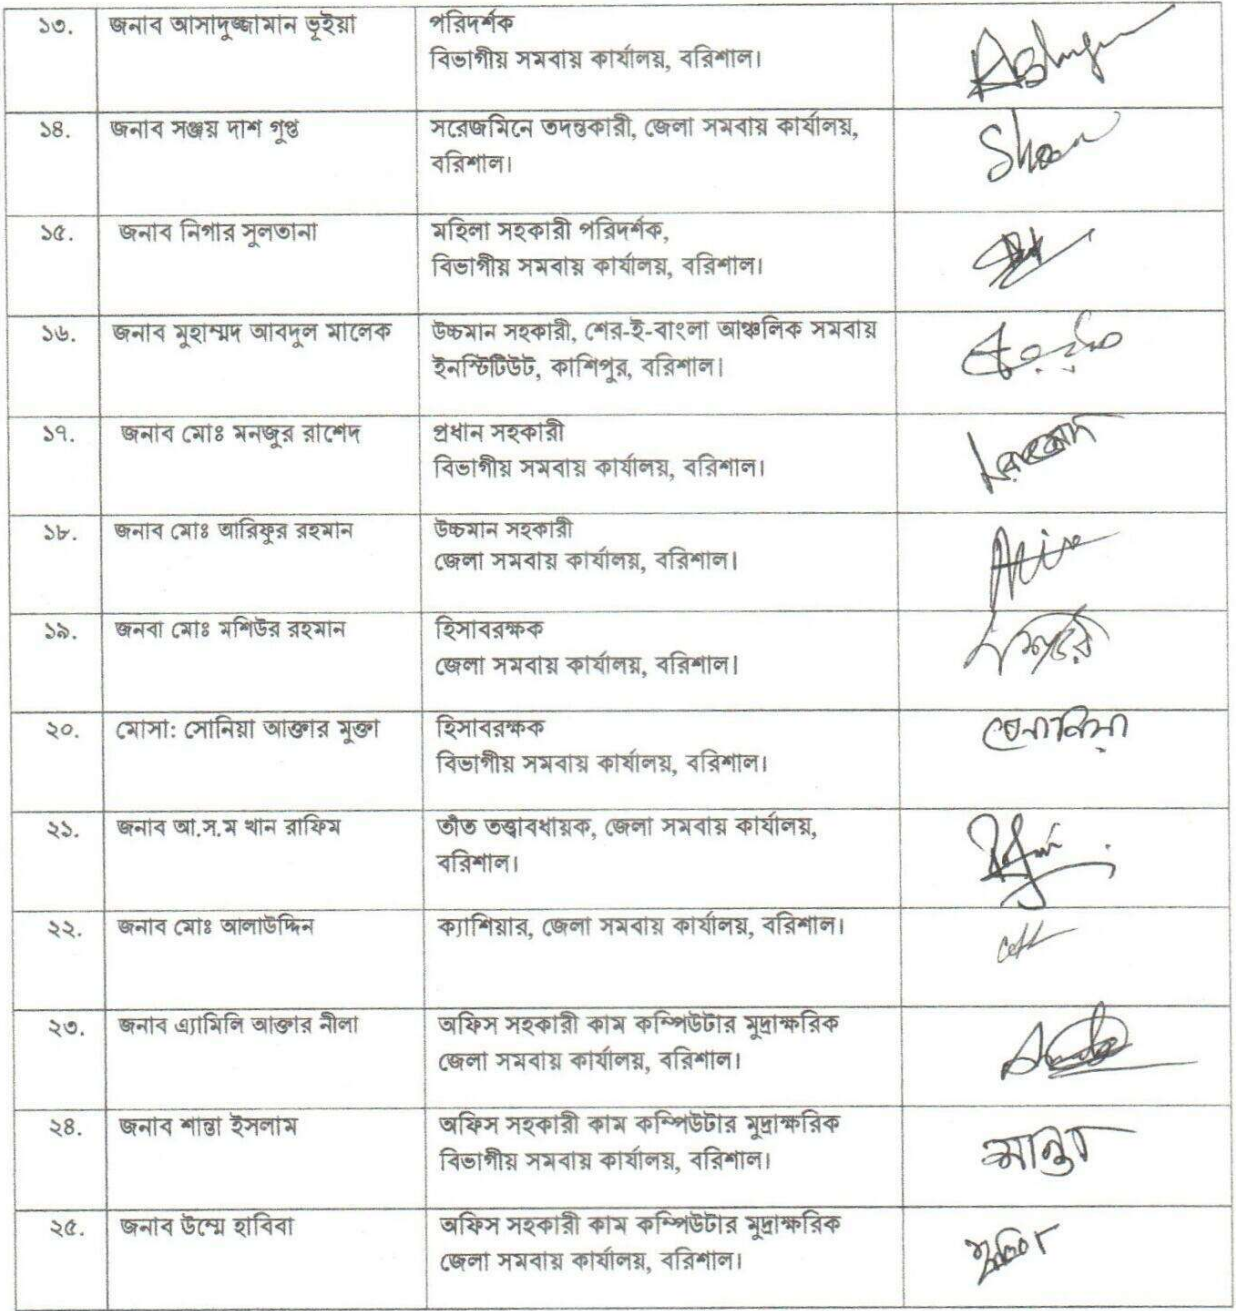 ১৩. জনাব আসাদুজ্জামান ভূইয়া পরিদর্শক
বিভাগীয় সমবায় কার্যালয়, বরিশাল।
১৪. জনাব সঞ্জয় দাশ গুপ্ত সরেজমিনে তদন্তকারী, জেলা সমবায় কার্যালয়,
বরিশাল।
১৫. জনাব নিগার সুলতানা মহিলা সহকারী পরিদর্শক,
বিভাগীয় সমবায় কার্যালয়, বরিশাল।
১৬. জনাব মুহাম্মদ আবদুল মালেক উচ্চমান সহকারী, শের-ই-বাংলা আঞ্চলিক সমবায়
ইনস্টিটিউট, কাশিপুর, বরিশাল।
১৭. জনাব মোঃ মনজুর রাশেদ প্রধান সহকারী
বিভাগীয় সমবায় কার্যালয়, বরিশাল।
১৮. জনাব মোঃ আরিফুর রহমান উচ্চমান সহকারী
জেলা সমবায় কার্যালয়, বরিশাল।
১৯. জনবা মোঃ মশিউর রহমান হিসাবরক্ষক
জেলা সমবায় কার্যালয়, বরিশাল।
২০. মোসা: সোনিয়া আক্তার মুক্তা হিসাবরক্ষক সোনিয়া
বিভাগীয় সমবায় কার্যালয়, বরিশাল।
২১. জনাব আ.স.ম খান রাফিম তাঁত তত্ত্বাবধায়ক, জেলা সমবায় কার্যালয়,
বরিশাল।
২২. জনাব মোঃ আলাউদ্দিন ক্যাশিয়ার, জেলা সমবায় কার্যালয়, বরিশাল।
২৩. জনাব এ্যামিলি আক্তার নীলা অফিস সহকারী কাম কম্পিউটার মুদ্রাক্ষরিক
জেলা সমবায় কার্যালয়, বরিশাল।
২৪. জনাব শান্তা ইসলাম অফিস সহকারী কাম কম্পিউটার মুদ্রাক্ষরিক
বিভাগীয় সমবায় কার্যালয়, বরিশাল। শান্তা
২৫. জনাব উম্মে হাবিবা অফিস সহকারী কাম কম্পিউটার মুদ্রাক্ষরিক
জেলা সমবায় কার্যালয়, বরিশাল।